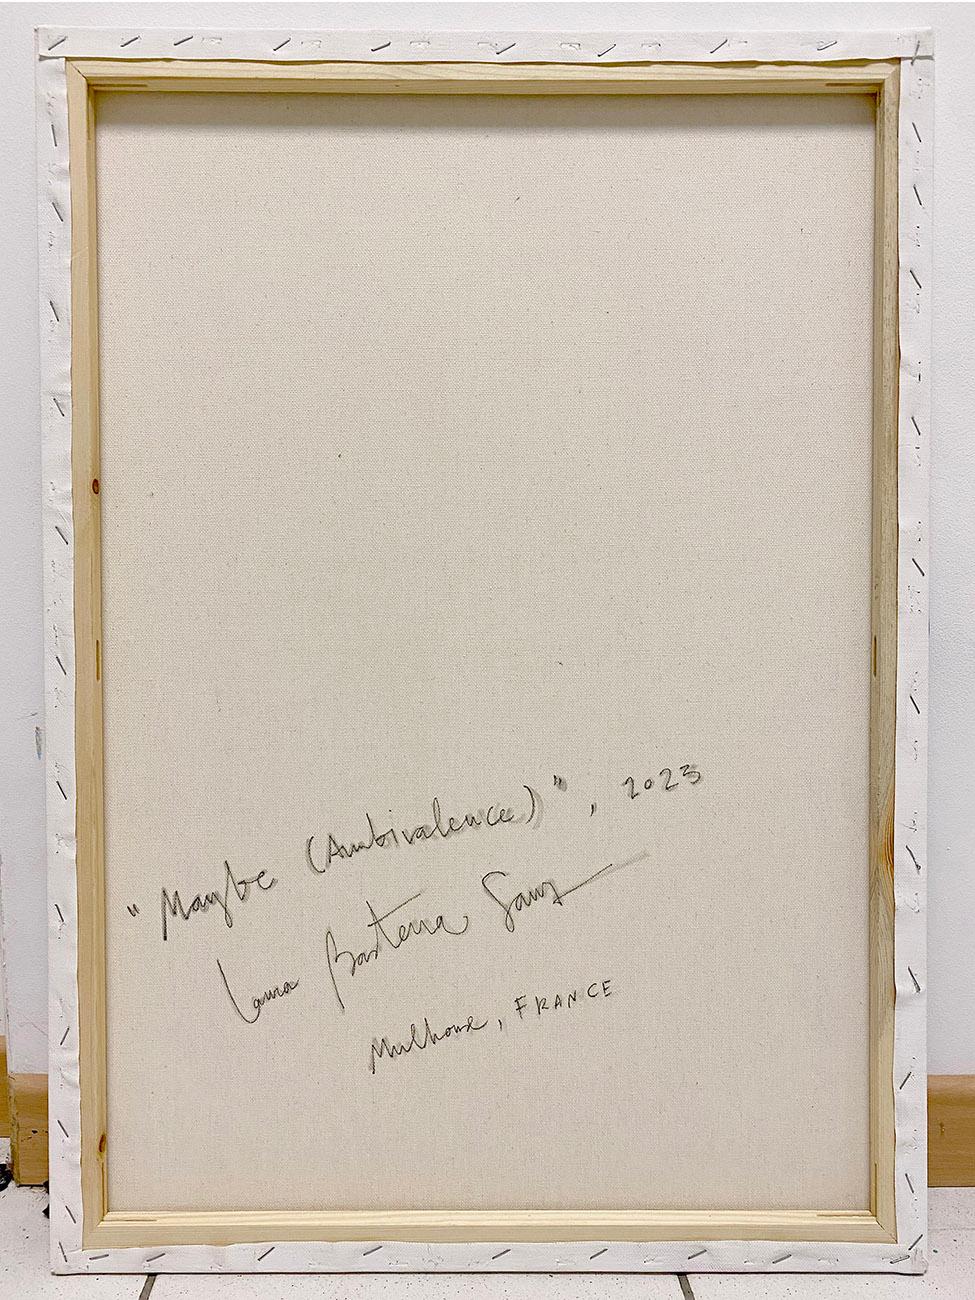 "Maybe (Ambivalence)", 2023
Laura Basterra Sanz
Mulhouse, FRANCE